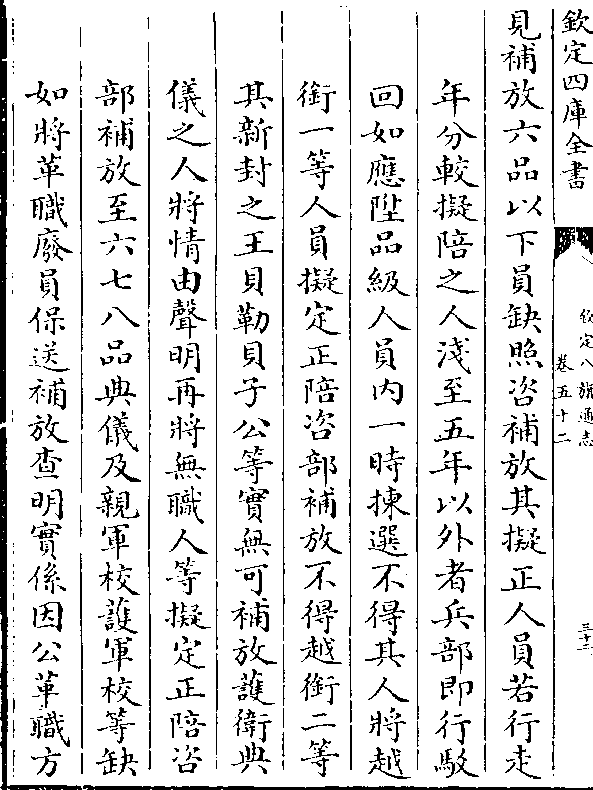 欽定四庫全書
欽定八旗通志
卷五十二
三十二
見補放六品以下員缺照咨補放其擬正人員若行走
年分較擬陪之人淺至五年以外者兵部即行駁
回如應陞品級人員内一時揀選不得其人將越
銜一等人員擬定正陪咨部補放不得越銜二等
其新封之王貝勒貝子公等實無可補放護衛典
儀之人將情由聲明再將無職人等擬定正陪咨
部補放至六七八品典儀及親軍校護軍校等缺
如將革職廢員保送補放查明實係因公革職方